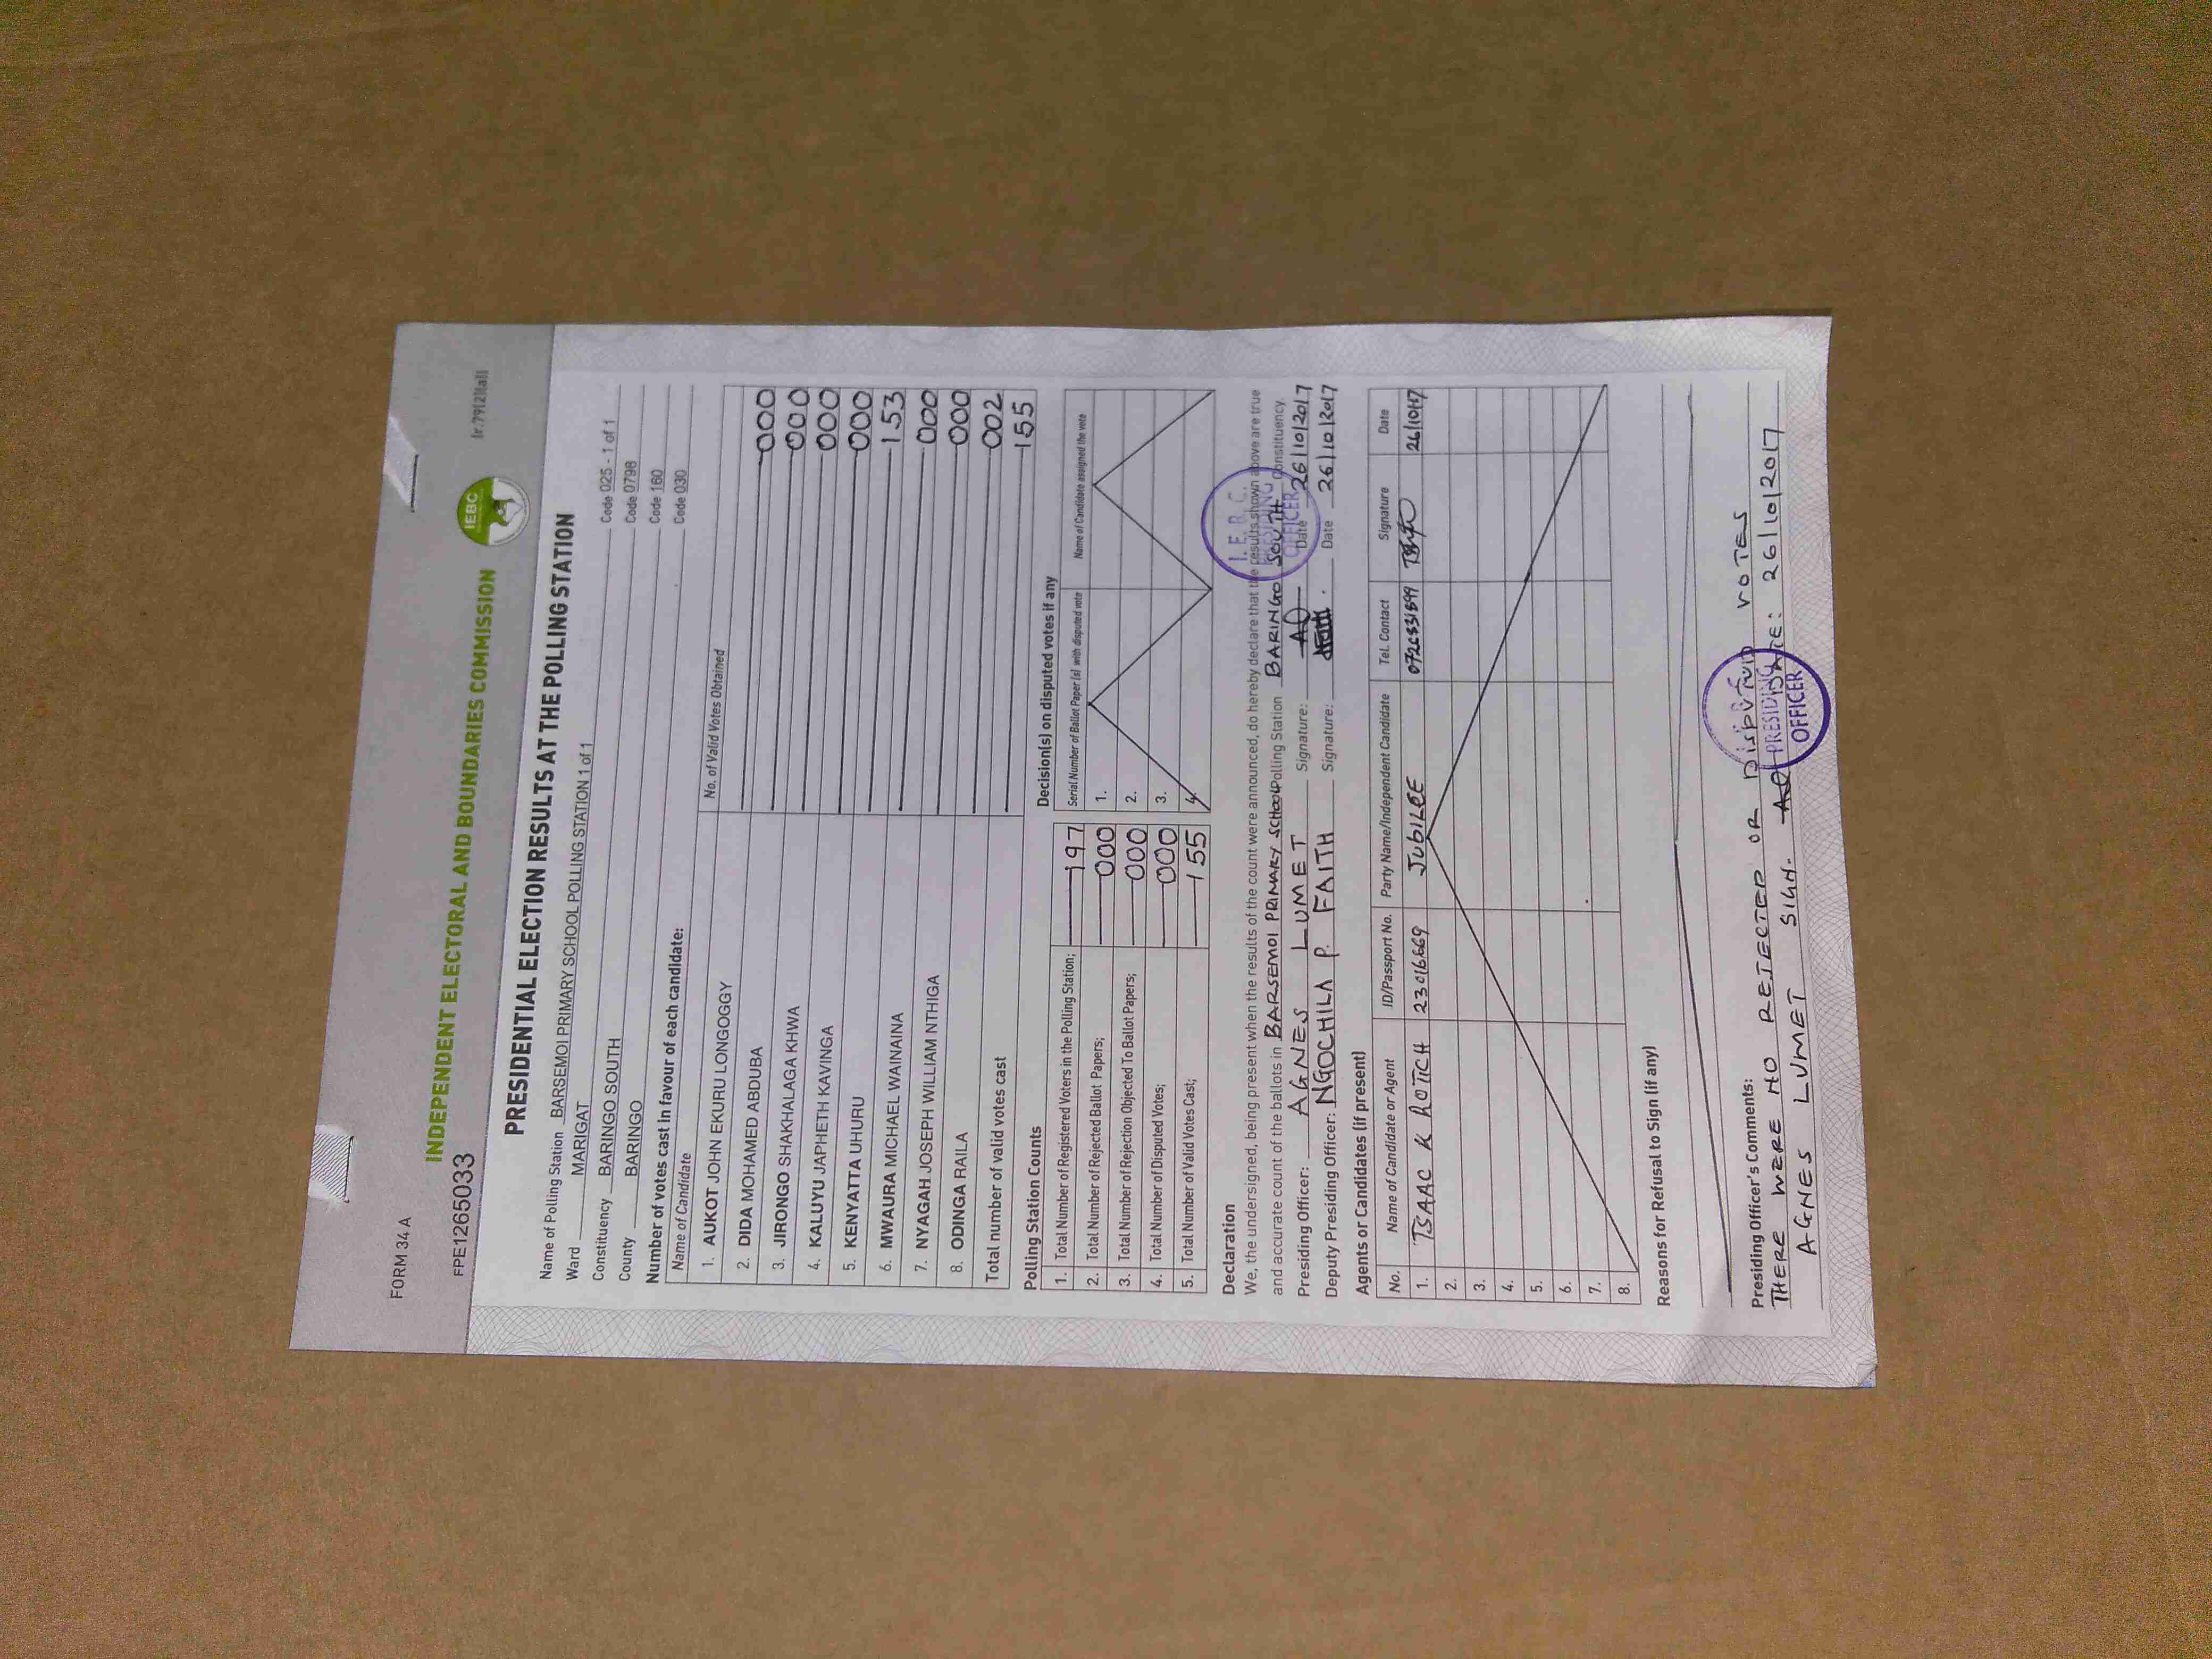 FORM 34 A
Ir.79(2)(a)]
INDEPENDENT ELECTORAL AND BOUNDARIES COMMISSION
IEBC
FPE1265033
PRESIDENTIAL ELECTION RESULTS AT THE POLLING STATION
Name of Polling Station BARSEMOI PRIMARY SCHOOL POLLING STATION 1 of 1 Code 025 - 1 of 1
Ward MARIGAT Code 0798
Constituency BARINGO SOUTH Code 160
County BARINGO Code 030
Number of votes cast in favour of each candidate:
Name of Candidate No. of Valid Votes Obtained
1. AUKOT JOHN EKURU LONGOGGY 000
2. DIDA MOHAMED ABDUBA 000
3. JIRONGO SHAKHALAGA KHWA 000
4. KALUYU JAPHETH KAVINGA 000
5. KENYATTA UHURU 153
6. MWAURA MICHAEL WAINAINA 000
7. NYAGAH JOSEPH WILLIAM NTHIGA 000
8. ODINGA RAILA 002
Total number of valid votes cast 155
Polling Station Counts
1. Total Number of Registered Voters in the Polling Station; 197
2. Total Number of Rejected Ballot Papers; 000
3. Total Number of Rejection Objected To Ballot Papers; 000
4. Total Number of Disputed Votes; 000
5. Total Number of Valid Votes Cast; 155
Decision(s) on disputed votes if any
Serial Number of Ballot Paper (s) with disputed vote Name of Candidate assigned the vote
1.
2.
3.
4.
Declaration
We, the undersigned, being present when the results of the count were announced, do hereby declare that the results shown above are true
and accurate count of the ballots in BARSEMOI PRIMARY SCHOOL Polling Station BARINGO SOUTH Constituency.
Presiding Officer: AGNES LUMET Signature: Date 26/10/2017
Deputy Presiding Officer: NGOCHILA P. FAITH Signature: Date 26/10/2017
I.E.B.C.
PRESIDING
OFFICER
Agents or Candidates (if present)
No. Name of Candidate or Agent ID/Passport No. Party Name/Independent Candidate Tel. Contact Signature Date
1. ISAAC K ROTICH 23016669 JUBILEE 26/10/17
2.
3.
4.
5.
6.
7.
8.
Reasons for Refusal to Sign (if any)
Presiding Officer's Comments:
THERE WERE NO REJECTED OR DISPUTED VOTES
AGNES LUMET SIGN. DATE: 26/10/2017
PRESIDING
OFFICER